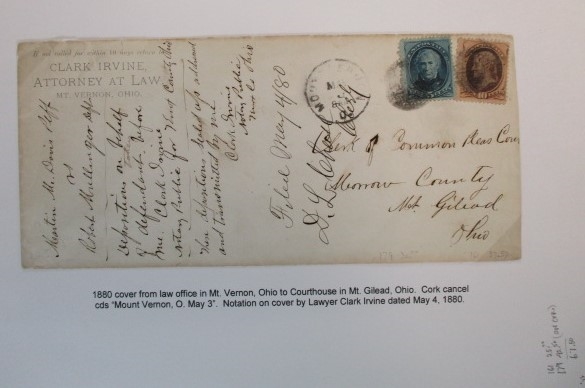 If not called for within 10 days return
CLARK IRVINE,
ATTORNEY AT LAW
MT. VERNON, OHIO.
Martin M. Davis Plff
vs
Robert Deft
Depositions on behalf
of defendant before
me Clark Irvine
Notary Public for Knox County Ohio
These depositions sealed up addressed
and transmitted by me
Clark Irvine
Notary Public
Knox Co Ohio
Filed May 4/80
D. L. Clerk
Clerk of Common Pleas Cour
Morrow County
Mt. Gilead
Ohio
1880 cover from law office in Mt. Vernon, Ohio to Courthouse in Mt. Gilead, Ohio. Cork cancel
cds “Mount Vernon, O. May 3”. Notation on cover by Lawyer Clark Irvine dated May 4, 1880.
67.50